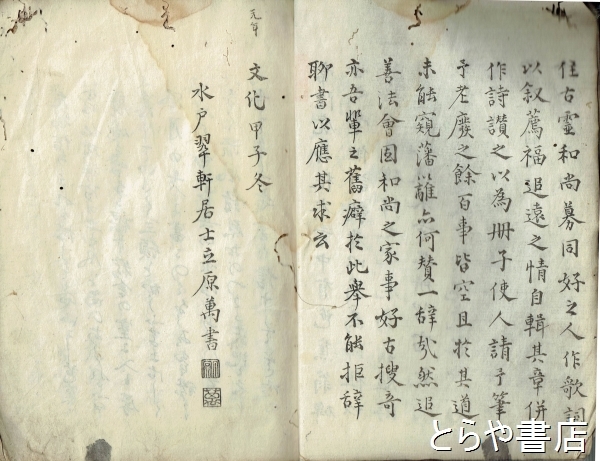 住古霊和尚募同好之人作歌詞
以叙薦福追遠之情自輯其章併
作詩讃之以為册子使人請予筆
予老廢之餘百事皆空且於其道
未能窺藩籬亦何賛一辞哉然追
善法會固和尚之家事好古搜奇
亦吾輩之舊癖於此舉不能拒辞
聊書以應其求云
文化甲子冬
元年
水戸翠軒居士立原萬書
とらや書店